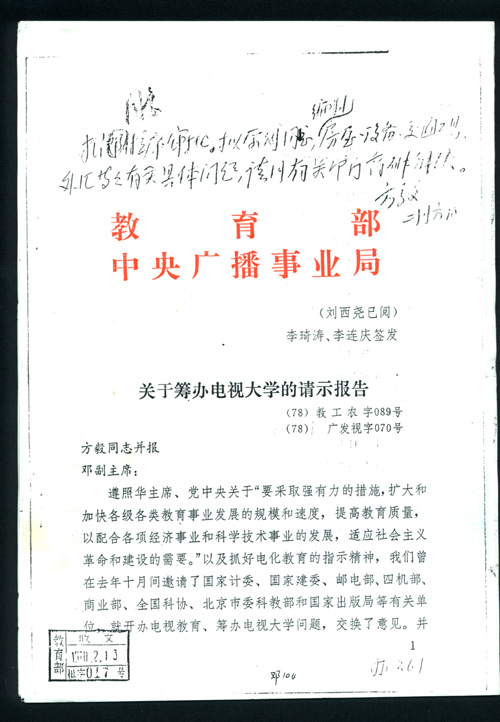 同意
编制
房屋、设备、交通工具、
外汇等之有关具体问题,请川有关部门商研解决。
方毅
教育部
中央广播事业局
(刘西尧已阅)
李琦涛、李连庆签发
关于筹办电视大学的请示报告
(78)教工农字089号
(78) 广发视字070号
方毅同志并报
邓副主席:
遵照华主席、党中央关于“要采取强有力的措施,扩大和
加快各级各类教育事业发展的规模和速度,提高教育质量,
以配合各项经济事业和科学技术事业的发展,适应社会主义
革命和建设的需要。”以及抓好电化教育的指示精神,我们曾
在去年十月间邀请了国家计委、国家建委、邮电部、四机部、
商业部、全国科协、北京市委科教部和国家出版局等有关单
位,就开办电视教育、筹办电视大学问题,交换了意见。并
1
教育部
收文
1978.2.13
017号
邓104
办261